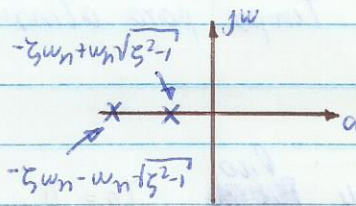 jω
-ζωn+ωn√ζ²-1
σ
-ζωn-ωn√ζ²-1